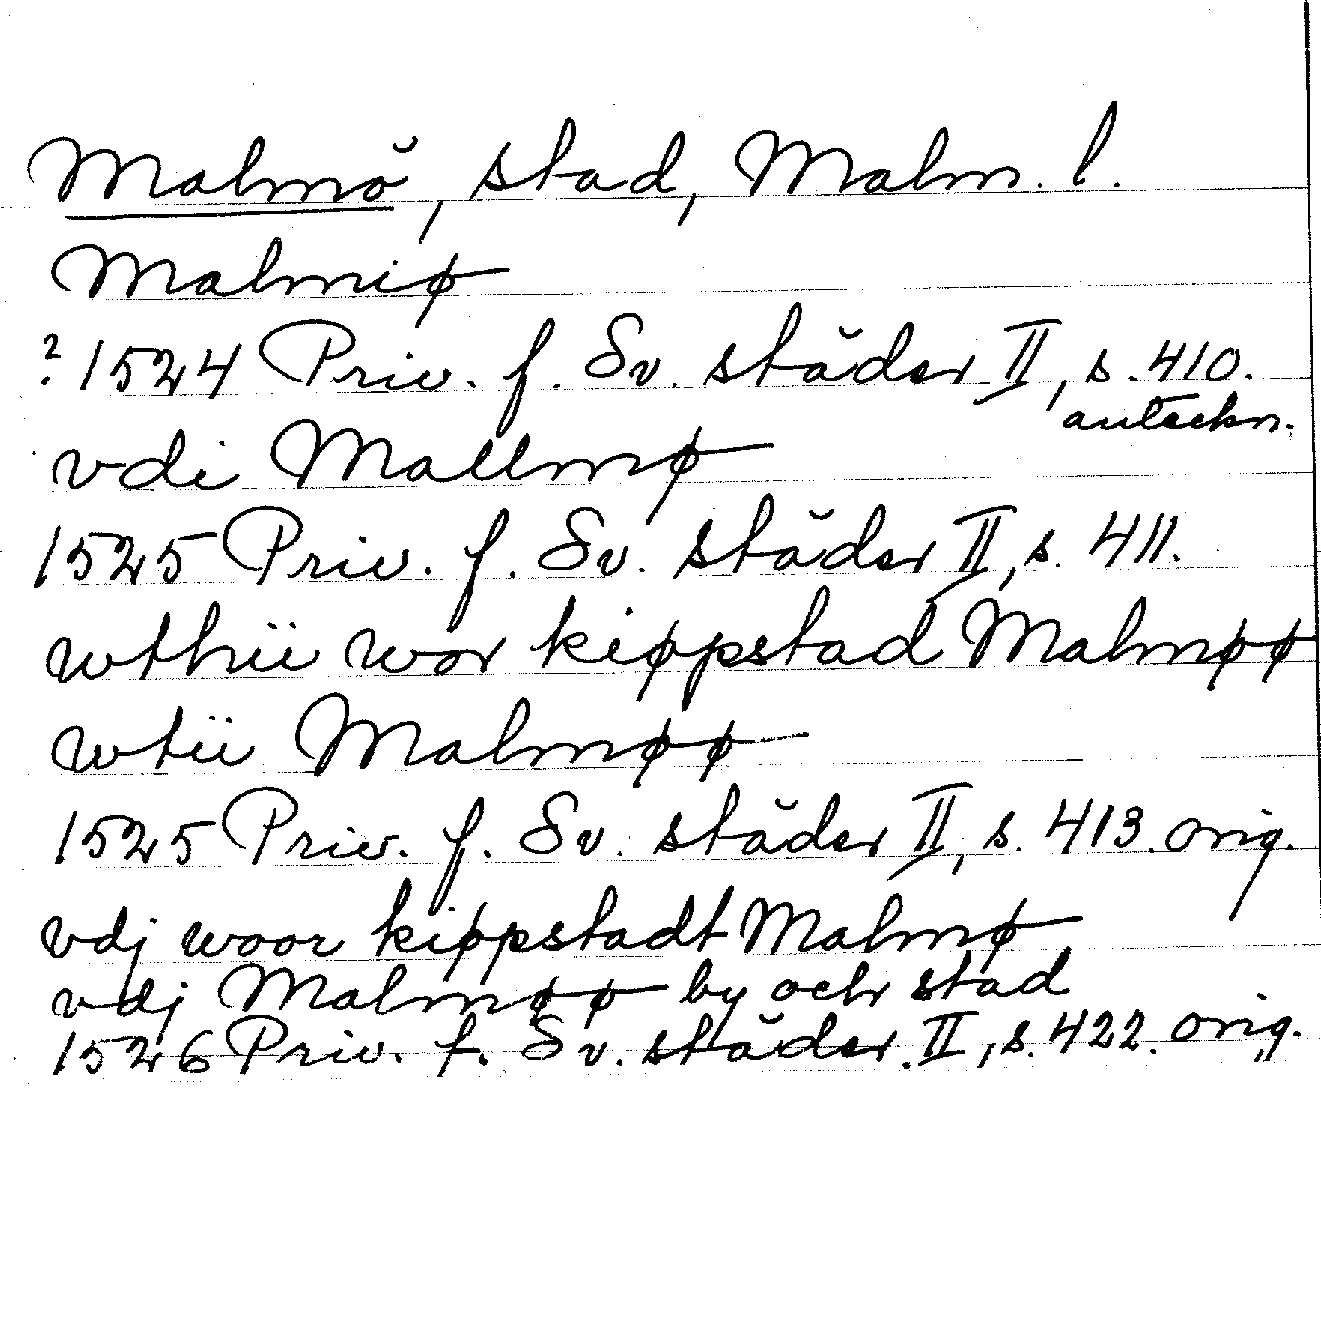 Malmö, stad, Malm. l.
Malmiø
? 1524 Priv. f. Sv. städer II, s. 410.
anteckn.
vdi Mallmø
1525 Priv. f. Sv. städer II, s. 411.
wthii wor kiøpstad Malmøø
wtii Malmøø
1525 Priv. f. Sv. städer II, s. 413. orig.
vdj woor kiøpstadt Malmø
vdj Malmøø by och stad
1526 Priv. f. Sv. städer II, s. 422. orig.